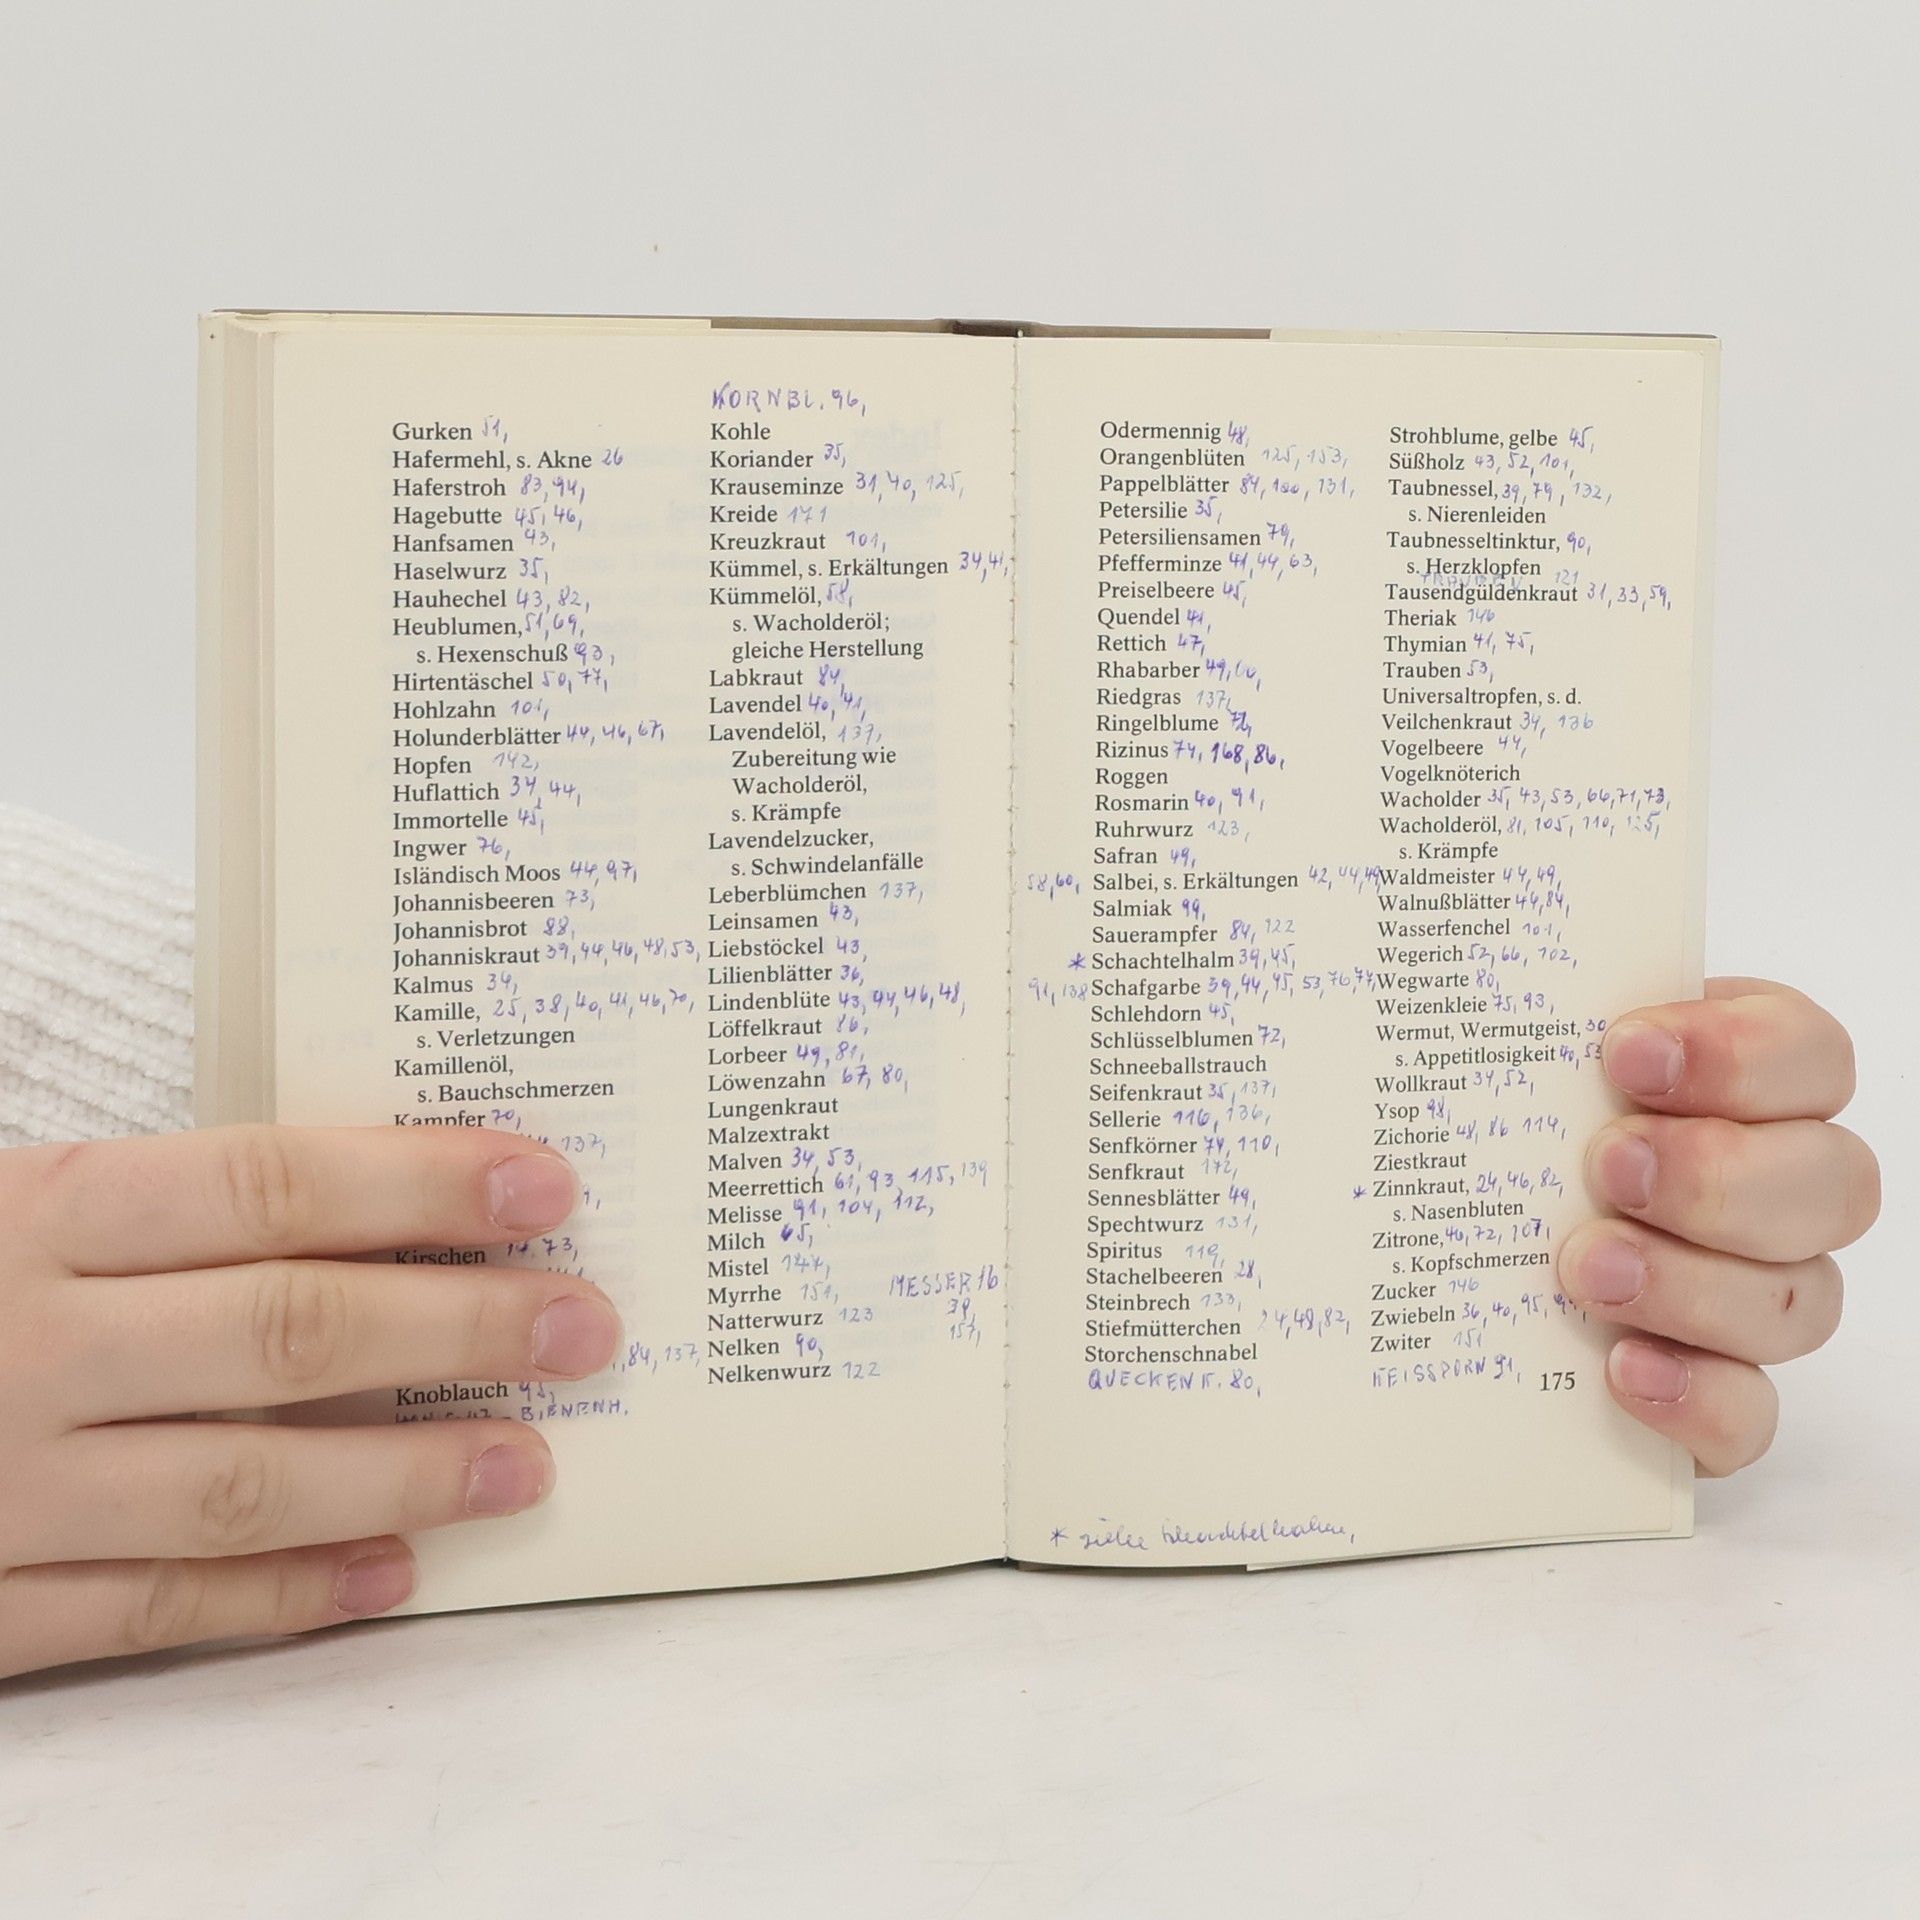 Gurken 51,
Hafermehl, s. Akne 26
Haferstroh 83, 94,
Hagebutte 45, 46,
Hanfsamen 43,
Haselwurz 35,
Hauhechel 43, 82,
Heublumen, 51, 69,
s. Hexenschuß 93,
Hirtentäschel 50, 77,
Hohlzahn 101,
Holunderblätter 44, 46, 67,
Hopfen 142,
Huflattich 34, 44,
Immortelle 45,
Ingwer 76,
Isländisch Moos 44, 97,
Johannisbeeren 73,
Johannisbrot 88,
Johanniskraut 39, 44, 46, 48, 53,
Kalmus 34,
Kamille, 25, 38, 40, 41, 46, 70,
s. Verletzungen
Kamillenöl,
s. Bauchschmerzen
Kampfer 70,
137,
Kirschen 73,
84, 137,
Knoblauch 95,
BIENENH.
KORNBL. 96,
Kohle
Koriander 35,
Krauseminze 31, 40, 125,
Kreide 171
Kreuzkraut 101,
Kümmel, s. Erkältungen 34, 41,
Kümmelöl, 58,
s. Wacholderöl;
gleiche Herstellung
Labkraut 84,
Lavendel 40, 41,
Lavendelöl, 137,
Zubereitung wie
Wacholderöl,
s. Krämpfe
Lavendelzucker,
s. Schwindelanfälle
Leberblümchen 137,
Leinsamen 43,
Liebstöckel 43,
Lilienblätter 36,
Lindenblüte 43, 44, 46, 48,
Löffelkraut 86,
Lorbeer 49, 81,
Löwenzahn 67, 80,
Lungenkraut
Malzextrakt
Malven 34, 53,
Meerrettich 61, 93, 115, 139
Melisse 91, 104, 112,
Milch 65,
Mistel 147,
Myrrhe 151, MESSER 16
39,
Natterwurz 123
157,
Nelken 90,
Nelkenwurz 122
Odermennig 48,
Orangenblüten 125, 153,
Pappelblätter 84, 100, 131,
Petersilie 35,
Petersiliensamen 79,
Pfefferminze 41, 44, 63,
Preiselbeere 45,
Quendel 41,
Rettich 47,
Rhabarber 49, 60,
Riedgras 137,
Ringelblume 72,
Rizinus 74, 168, 86,
Roggen
Rosmarin 40, 91,
Ruhrwurz 123,
Safran 49,
58, 60, Salbei, s. Erkältungen 42, 44, 49
Salmiak 99,
Sauerampfer 84, 122
* Schachtelhalm 39, 45,
91, 138 Schafgarbe 39, 44, 45, 53, 76, 77,
Schlehdorn 45,
Schlüsselblumen 72,
Schneeballstrauch
Seifenkraut 35, 137,
Sellerie 116, 136,
Senfkörner 74, 110,
Senfkraut 172,
Sennesblätter 49,
Spechtwurz 131,
Spiritus 119,
Stachelbeeren 28,
Steinbrech 133,
Stiefmütterchen 24, 48, 82,
Storchenschnabel
QUECKEN K. 80,
Strohblume, gelbe 45,
Süßholz 43, 52, 101,
Taubnessel, 39, 79, 132,
s. Nierenleiden
Taubnesseltinktur, 90,
s. Herzklopfen
TRAUBEN 121
Tausendgüldenkraut 31, 33, 59,
Theriak 146
Thymian 41, 75,
Trauben 53,
Universaltropfen, s. d.
Veilchenkraut 34, 136
Vogelbeere 44,
Vogelknöterich
Wacholder 35, 43, 53, 66, 71, 73,
Wacholderöl, 81, 105, 110, 125,
s. Krämpfe
Waldmeister 44, 49,
Walnußblätter 44, 84,
Wasserfenchel 101,
Wegerich 52, 66, 102,
Wegwarte 80,
Weizenkleie 75, 93,
Wermut, Wermutgeist, 30
s. Appetitlosigkeit 40, 53
Wollkraut 34, 52,
Ysop 98,
Zichorie 48, 86 114,
Ziestkraut
* Zinnkraut, 24, 46, 82,
s. Nasenbluten
Zitrone, 46, 72, 107,
s. Kopfschmerzen
Zucker 146
Zwiebeln 36, 40, 95,
Zwiter 151
HEISSPORN 91,
175
* siehe Schachtelhalm,